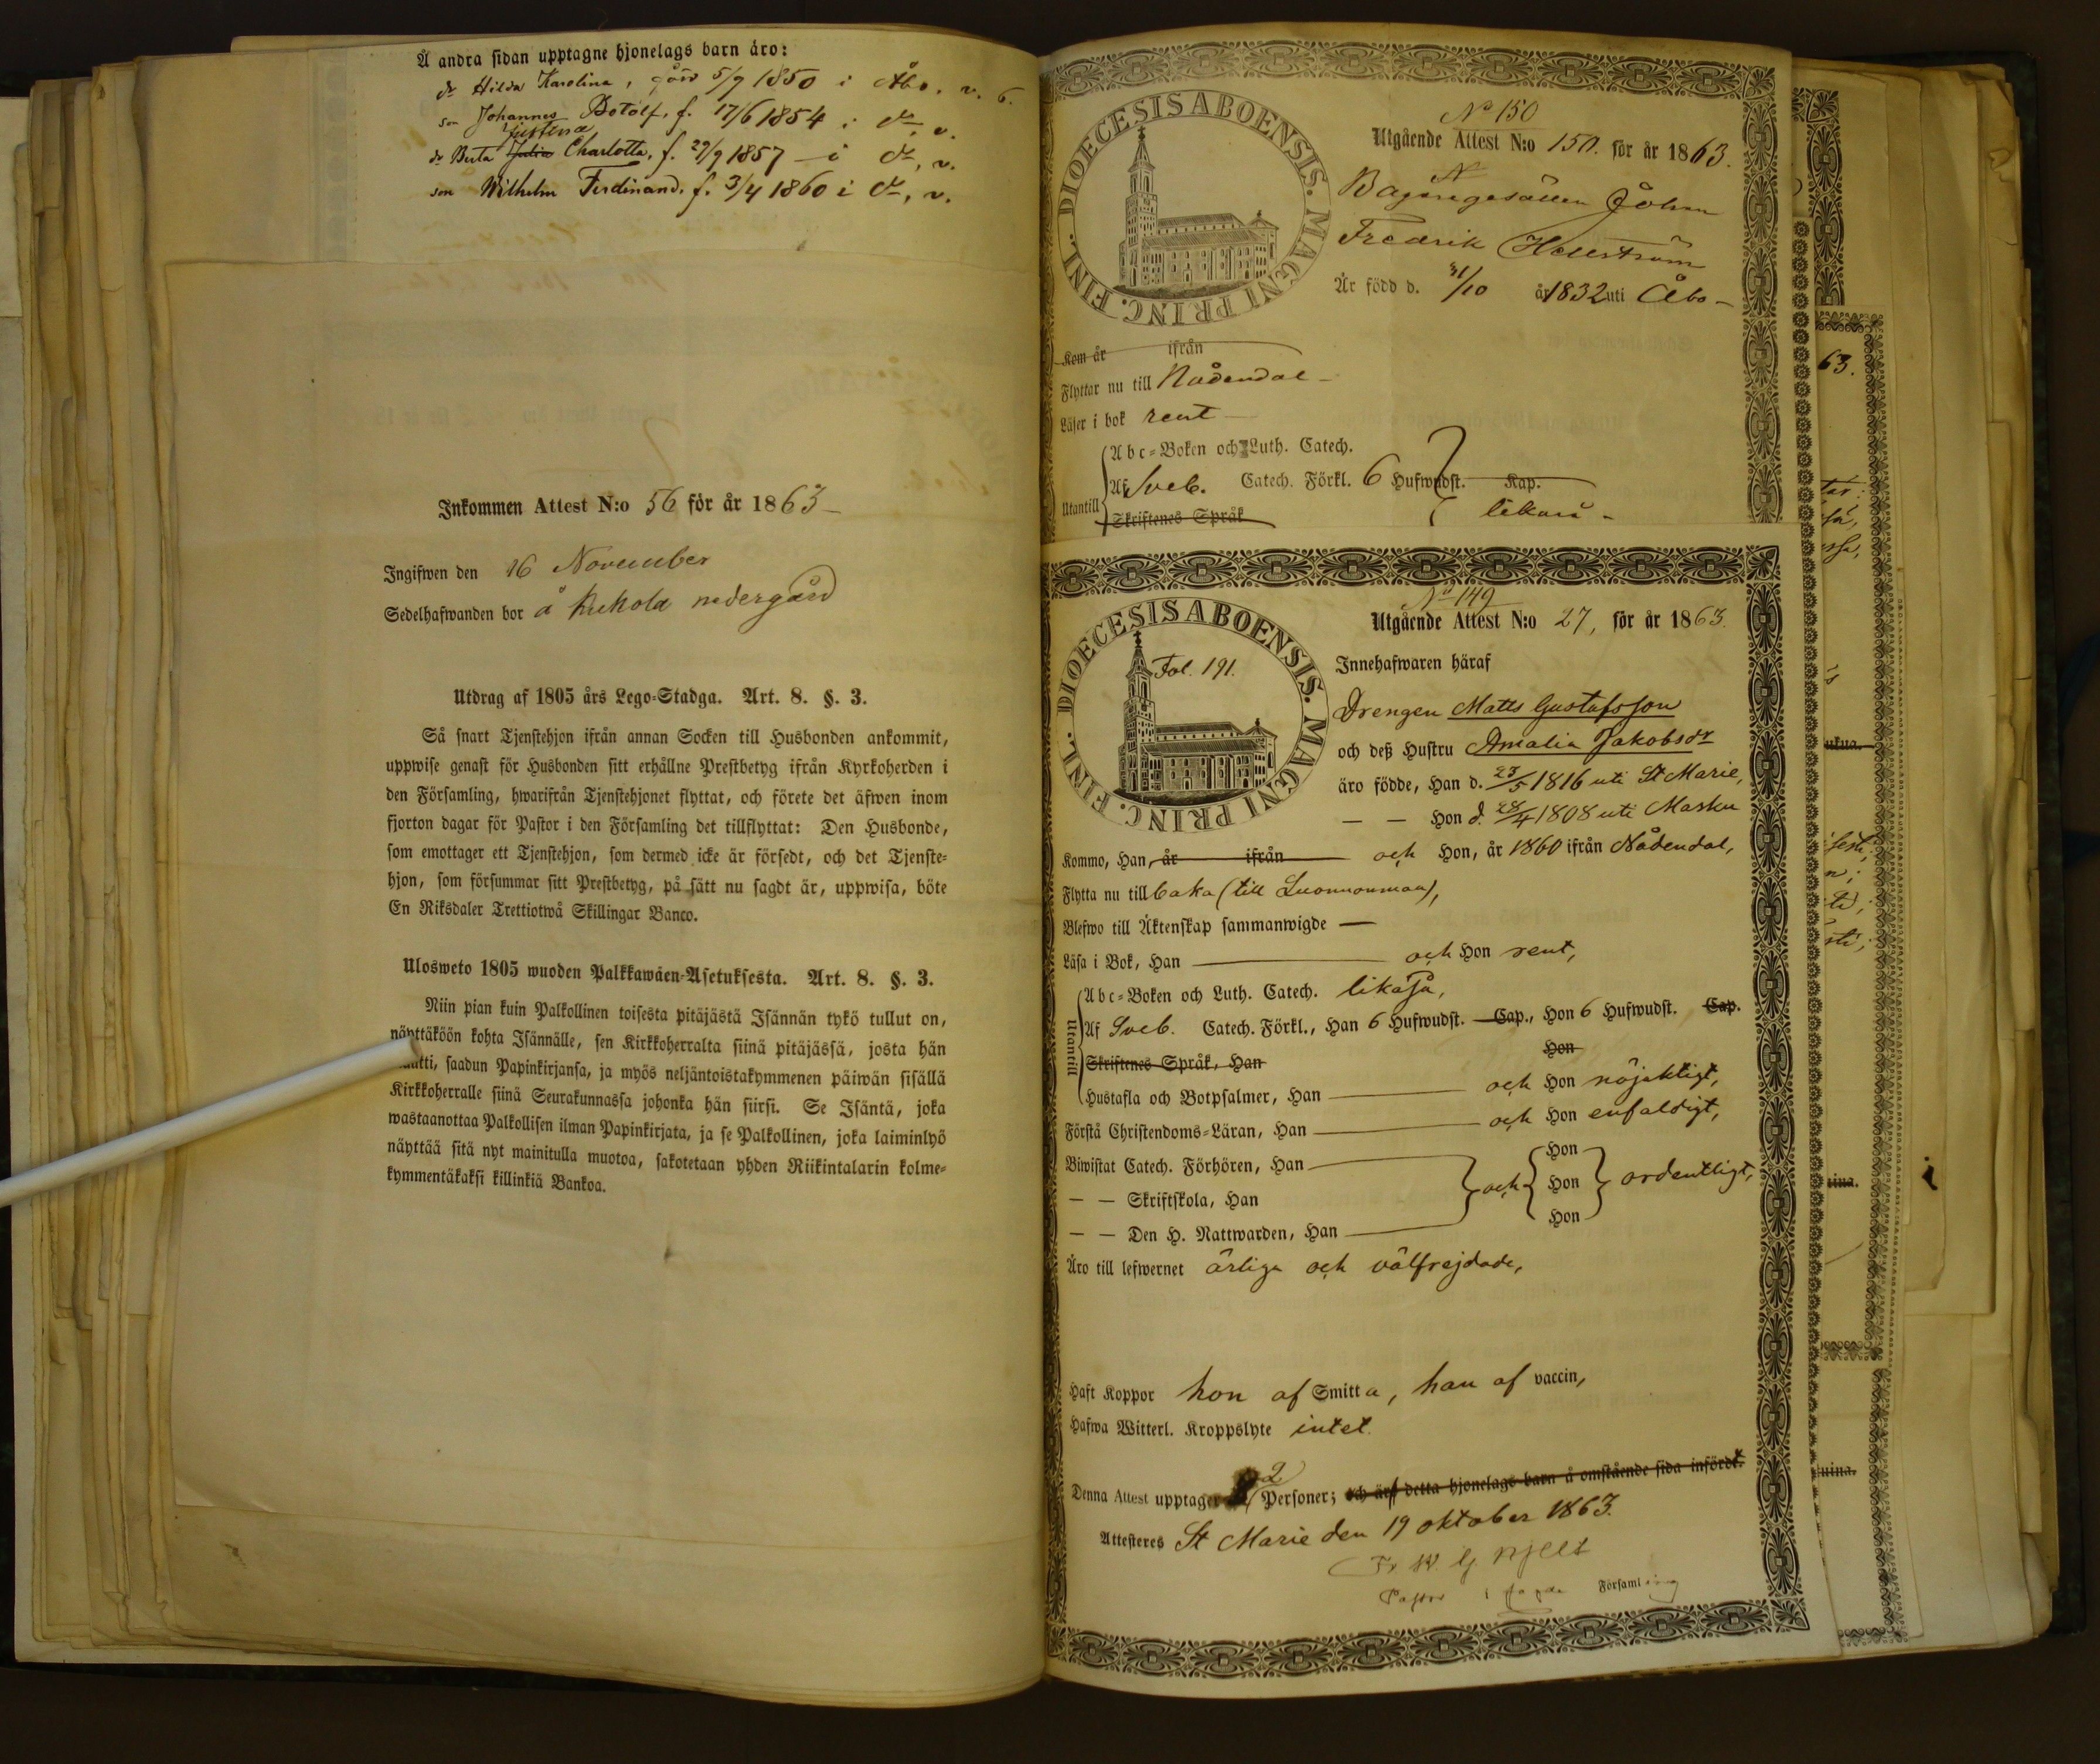 Å andra sidan upptagne hjonelags barn äro:
dr Hilda Karolina, född 5/9 1850 i Åbo, v. 6.
son Johannes Botolf, f. 17/6 1854 i do, v.
Justina
dr Berta Julia Charlotta, f. 29/9 1857 – i do, v.
son Wilhelm Ferdinand, f. 3/4 1860 i do, v.
Inkommen Attest N:o 56 för år 1863
Ingifwen den 16 November
Sedelhafwanden bor å Kukola nedergård
Utdrag af 1805 års Lego-Stadga. Art. 8. §. 3.
Så snart Tjenstehjon ifrån annan Socken till Husbonden ankommit,
uppwise genast för Husbonden sitt erhållne Prestbetyg ifrån Kyrkoherden i
den Församling, hwarifrån Tjenstehjonet flyttat, och förete det äfwen inom
fjorton dagar för Pastor i den Församling det tillflyttat: Den Husbonde,
som emottager ett Tjenstehjon, som dermed icke är försedt, och det Tjenste-
hjon, som försummar sitt Prestbetyg, på sätt nu sagdt är, uppwisa, böte
En Riksdaler Trettiotwå Skillingar Banco.
Ulosweto 1805 wuoden Palkkawäen-Asetuksesta. Art. 8. §. 3.
Niin pian kuin Palkollinen toisesta pitäjästä Isännän tykö tullut on,
näyttäköön kohta Isännälle, sen Kirkkoherralta siinä pitäjässä, josta hän
muutti, saadun Papinkirjansa, ja myös neljäntoistakymmenen päiwän sisällä
Kirkkoherralle siinä Seurakunnassa johonka hän siirsi. Se Isäntä, joka
wastaanottaa Palkollisen ilman Papinkirjata, ja se Palkollinen, joka laiminlyö
näyttää sitä nyt mainitulla muotoa, sakotetaan yhden Riikintalarin kolme-
kymmentäkaksi killinkiä Bankoa.
DIOECESIS ABOENSIS. MAGNI PRINC. FINL.
No 150
Utgående Attest N:o 150. för år 1863.
John
Fredrik Hellström
Är född d. 31/10 år 1832 uti Åbo –
Kom år ifrån
Flyttar nu till Nådendal –
Läser i bok rent
Abc-Boken och Luth. Catech.
Af Sveb. Catech. Förkl. 6 Hufwudst. Kap.
Utantill
Skriftenes Språk
likaså –
DIOECESIS ABOENSIS. MAGNI PRINC. FINL.
Fol. 191.
No 149
Utgående Attest N:o 27, för år 1863.
Innehafwaren häraf
Drengen Matts Gustafsson
och deß Hustru Amalia Jakobsdr
äro födde, Han d. 25/5 1816 uti St Marie,
— — Hon d. 28/4 1808 uti Masku
Kommo, Han, år ifrån och Hon, år 1860 ifrån Nådendal,
Flytta nu tillbaka (till Luonnonmaa),
Blefwo till Äktenskap sammanwigde —
Läsa i Bok, Han — och Hon rent,
Abc-Boken och Luth. Catech. likaså,
Af Sveb. Catech. Förkl., Han 6 Hufwudst. Cap., Hon 6 Hufwudst. Cap.
Utantill
Skriftenes Språk, Han Hon
Hustafla och Botpsalmer, Han — och Hon nöjaktigt,
Förstå Christendoms-Läran, Han — och Hon enfaldigt,
Biwistat Catech. Förhören, Han — Hon
— — Skriftskola, Han och Hon ordentligt,
— — Den H. Nattwarden, Han — Hon
Äro till lefwernet ärliga och välfrejdade,
Haft Koppor hon af Smitta, han af vaccin,
Hafwa Witterl. Kroppslyte intet.
Denna Attest upptager 2 Personer; och äro detta hjonelags barn å omstående sida infördt.
Attesteres St Marie den 19 oktober 1863.
Fr W. G. Hjelt
Pastor i Församling
63.